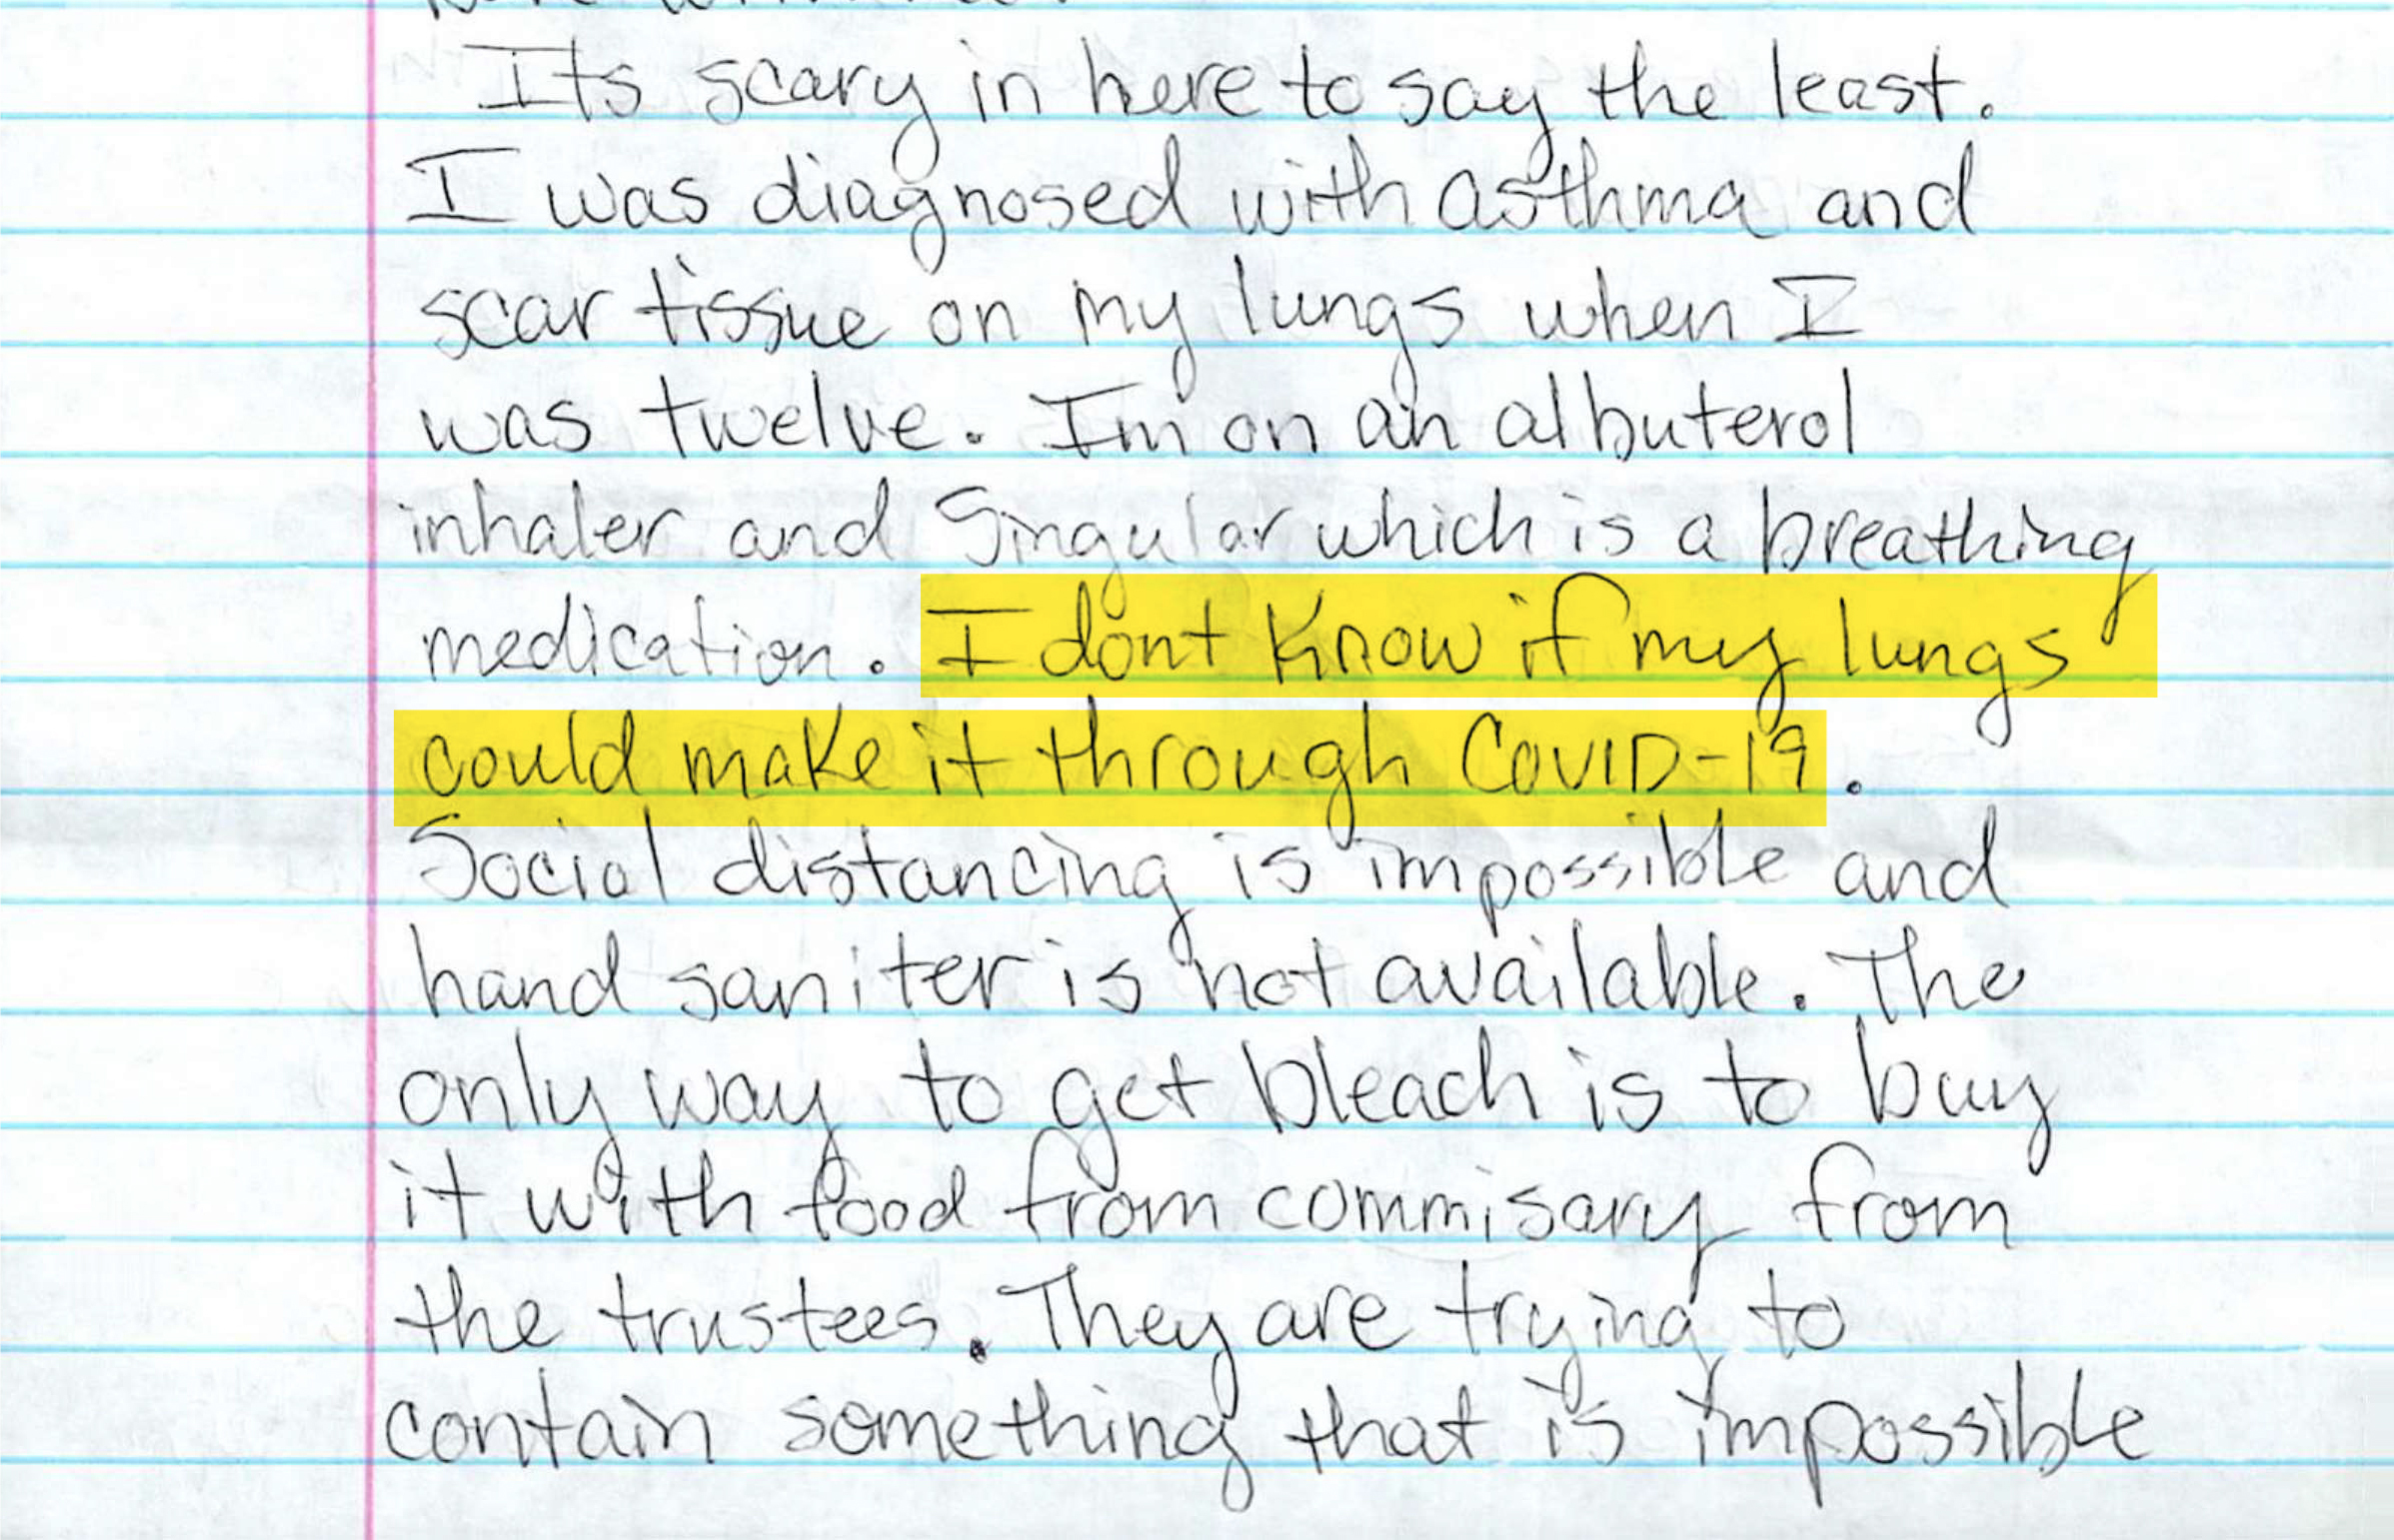 Its scary in here to say the least.
I was diagnosed with asthma and
scar tissue on my lungs when I
was twelve. Im on an albuterol
inhaler and Singular which is a breathing
medication. I dont know if my lungs
could make it through COVID-19.
Social distancing is impossible and
hand saniter is not available. The
only way to get bleach is to buy
it with food from commisary from
the trustees. They are trying to
contain something that is impossible